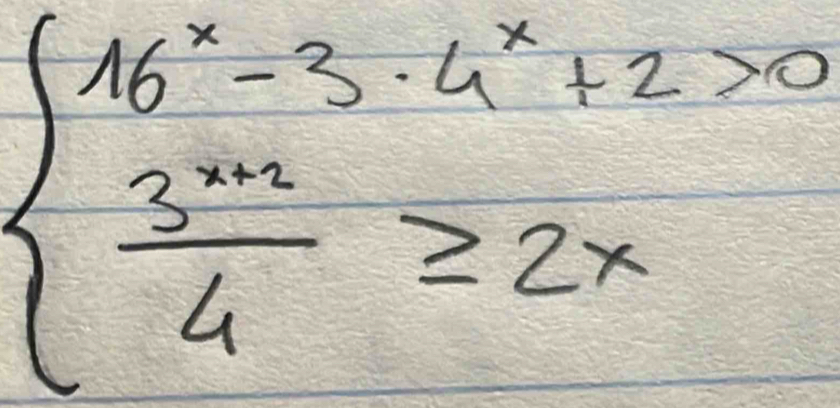 16^x - 3 · 4^x + 2 > 0
3^(x+2) / 4 ≥ 2x